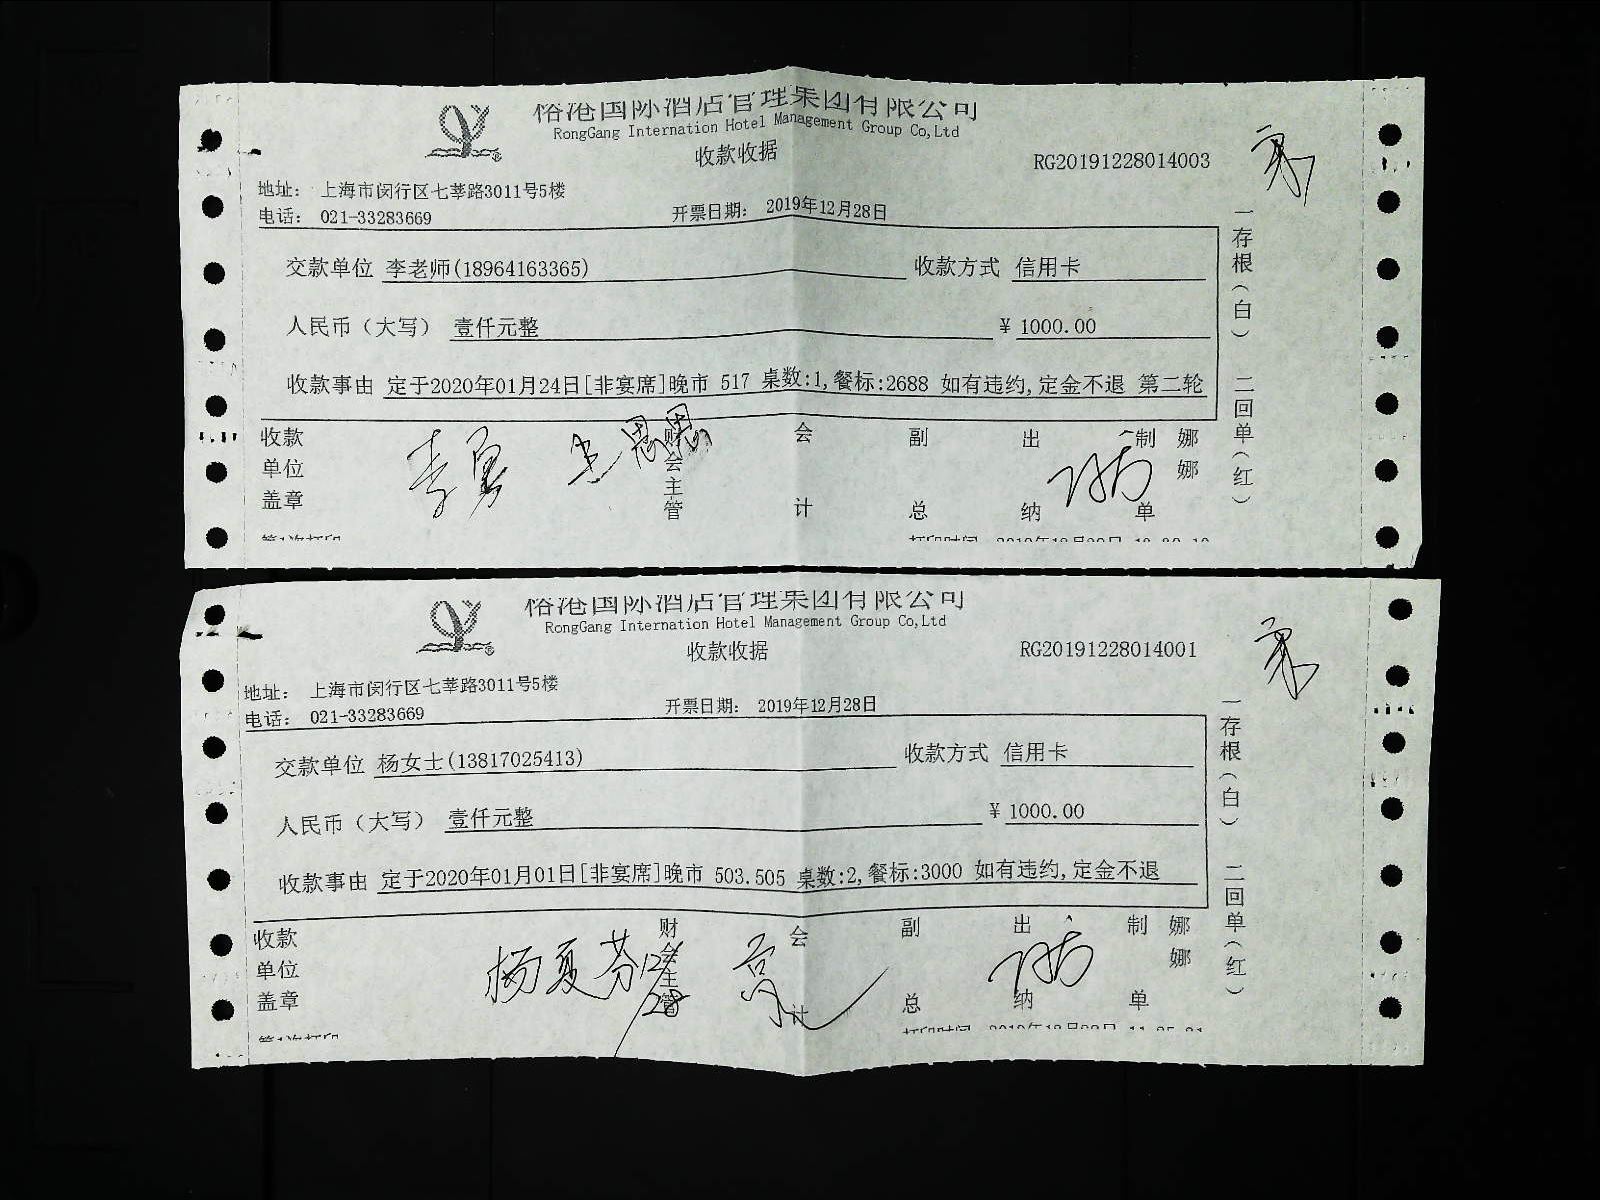 裕港国际酒店管理集团有限公司
RongGang Internation Hotel Management Group Co,Ltd
收款收据
RG20191228014003
地址： 上海市闵行区七莘路3011号5楼
电话： 021-33283669
开票日期： 2019年12月28日
交款单位 李老师(18964163365) 收款方式 信用卡
人民币（大写） 壹仟元整 ¥ 1000.00
收款事由 定于2020年01月24日[非宴席]晚市 517 桌数:1,餐标:2688 如有违约,定金不退 第二轮
收款单位盖章
财会主管
会计
副总
出纳
制单
娜娜
一存根（白） 二回单（红）
裕港国际酒店管理集团有限公司
RongGang Internation Hotel Management Group Co,Ltd
收款收据
RG20191228014001
地址： 上海市闵行区七莘路3011号5楼
电话： 021-33283669
开票日期： 2019年12月28日
交款单位 杨女士(13817025413) 收款方式 信用卡
人民币（大写） 壹仟元整 ¥ 1000.00
收款事由 定于2020年01月01日[非宴席]晚市 503.505 桌数:2,餐标:3000 如有违约,定金不退
收款单位盖章
杨夏芬
12/28
财会主管
会计
副总
出纳
制单
娜娜
一存根（白） 二回单（红）